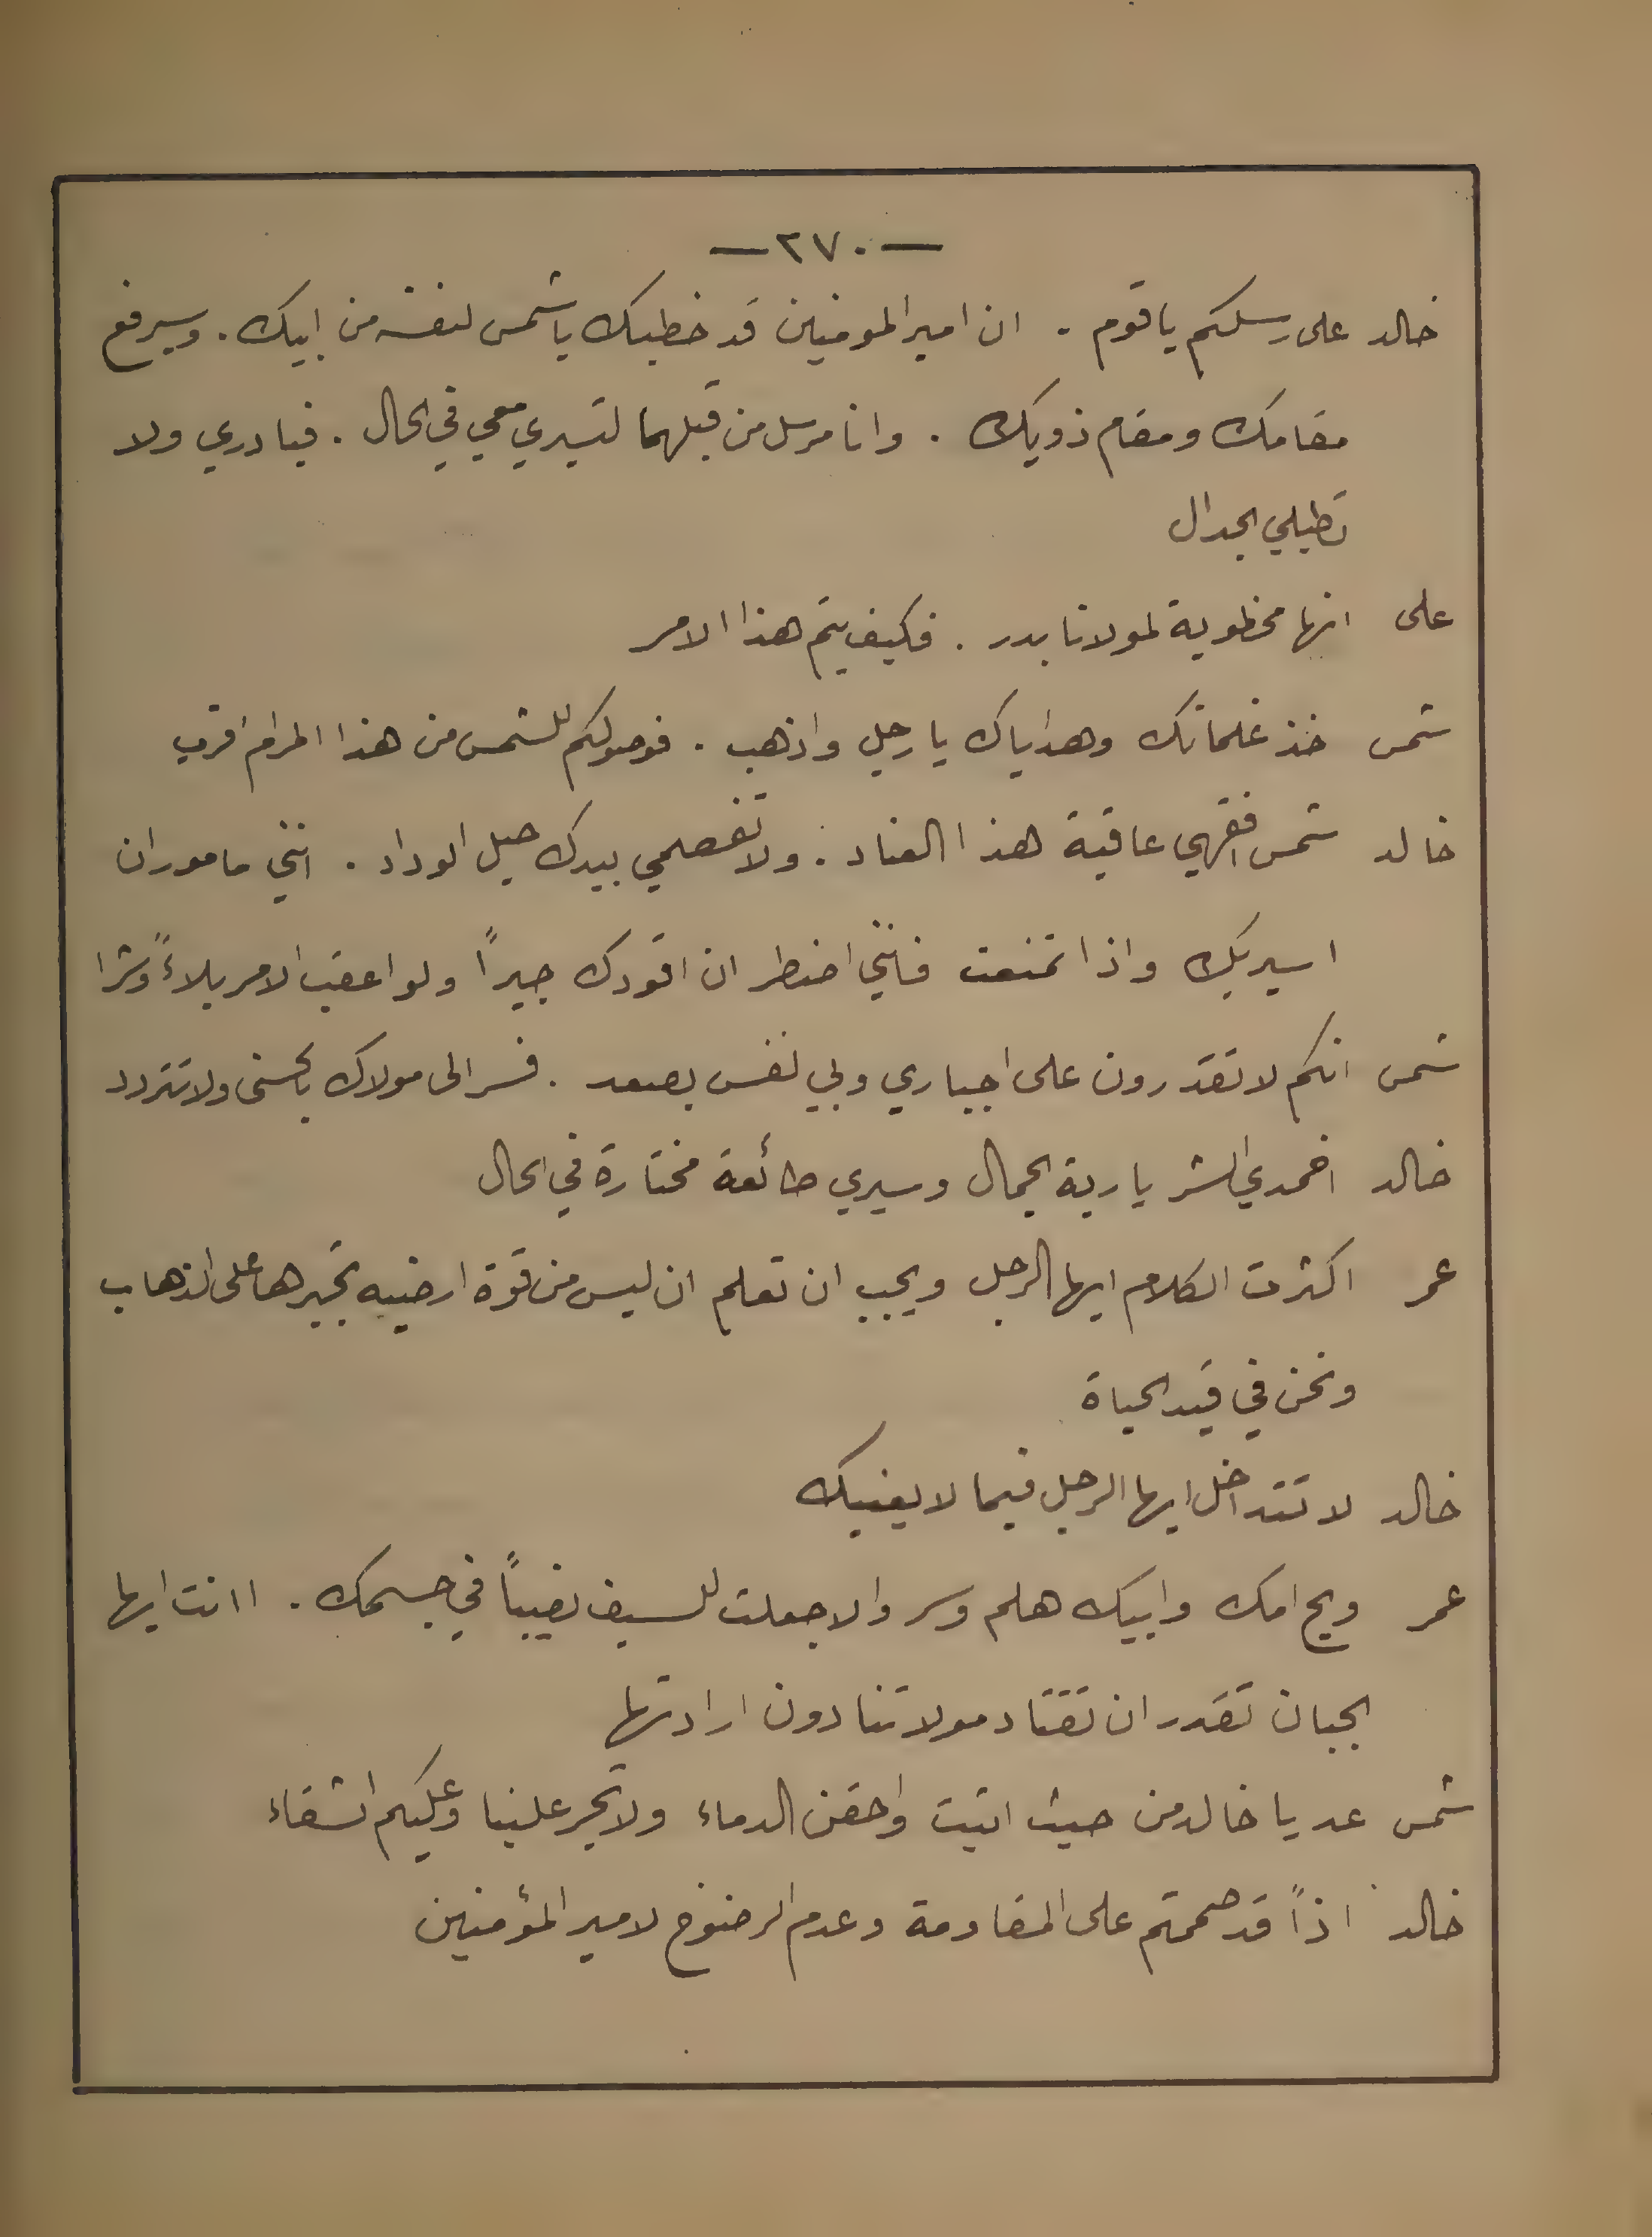 — ٢٧٠ —
خالد على رسلكم يا قوم . ان امير المومنين قد خطبك يا شمس لنفسه من ابيك . وسيرفع
مقامك ومقام ذويك . وانا مرسل من قبلهما لتسيري معي في الحال . فبادري ولا
تطيلي الجدال
على انها مخطوبة لمولانا بدر . فكيف يتم هذا الامر
شمس خذ غلمانك وهداياك يا رجل واذهب . فوصولكم للشمس من هذا المرام اقرب
خالد شمس افقهي عاقبة هذا العناد . ولا تفصمي بيدك حبل الوداد . انني مامور ان
اسير بك واذا تمنعت فانني اضطر ان اقودك جبراً ولو اعقب الامر بلاءً وشرا
شمس انكم لا تقدرون على اجباري وبي نفس يصعد . فسر الى مولاك بالحسنى ولا تتردد
خالد اخمدي الشر يا ربة الجمال وسيري طائعة مختارة في الحال
عمر اكثرت الكلام ايها الرجل ويجب ان تعلم ان ليس من قوة ارضيه تجبرها على الذهاب
ونحن في قيد الحياة
خالد لا تتداخل ايها الرجل فيما لا يعنيك
عمر ويح امك وابيك هلم وسر والا جعلت للسيف نصيباً في جسمك . اانت ايها
الجبان تقدر ان تقتاد مولاتنا دون ارادتها
شمس عد يا خالد من حيث اتيت واحقن الدماء ولا تجر علينا وعليكم الشقاء
خالد اذاً قد صممتم على المقاومة وعدم الرضوخ لامير المؤمنين